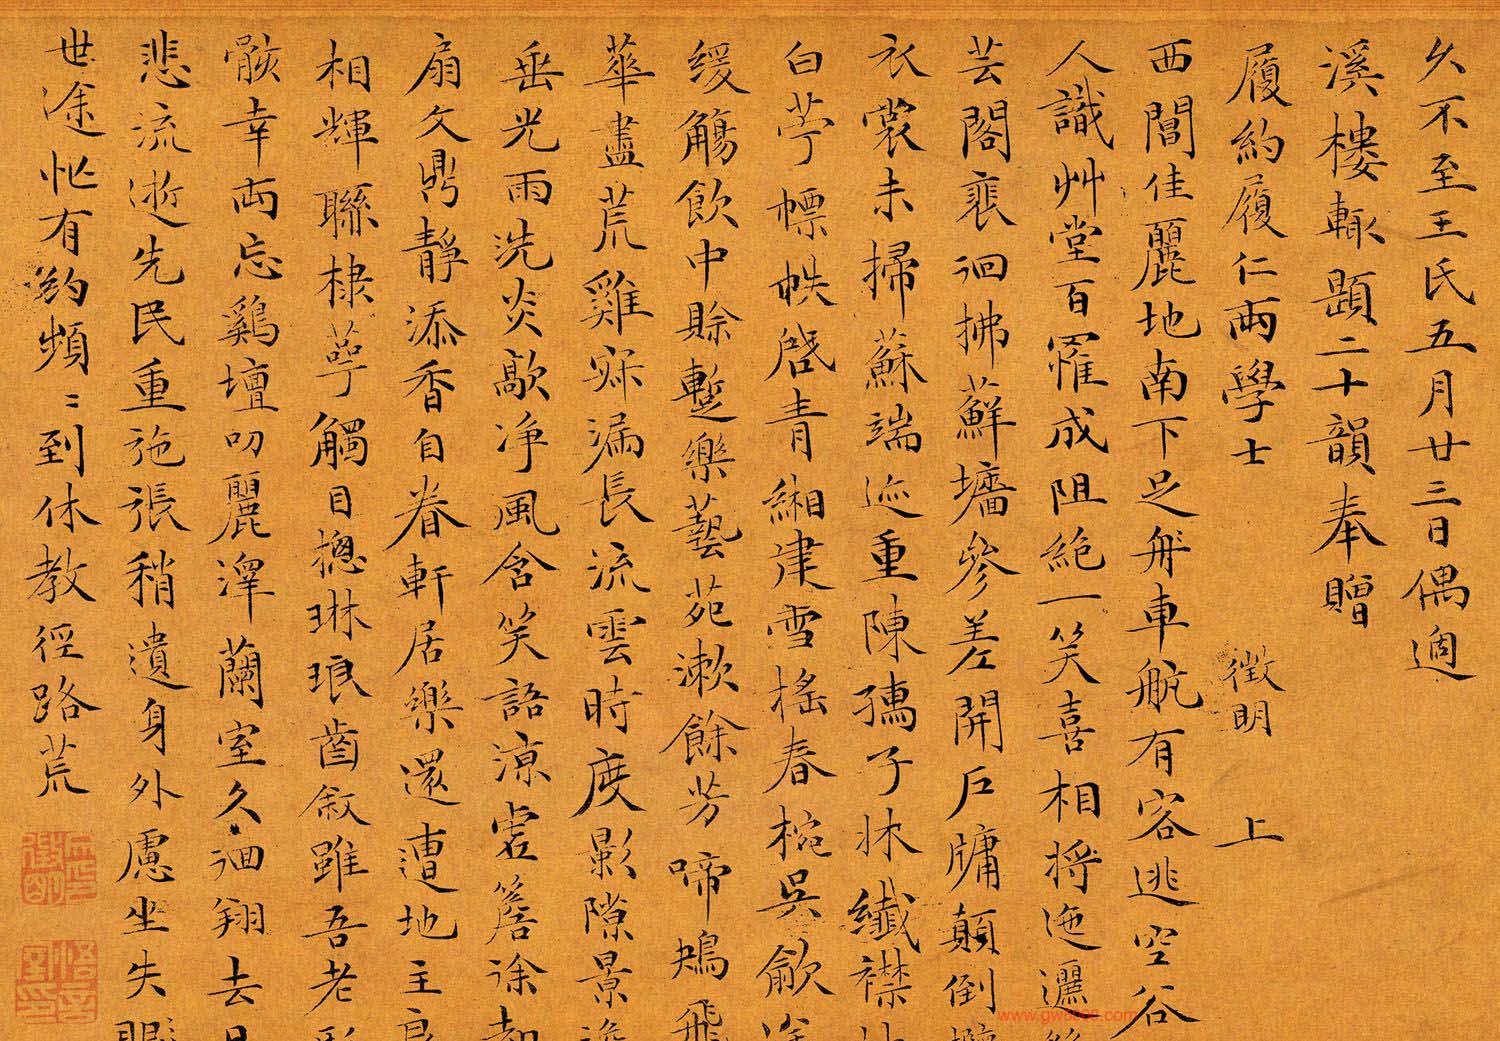 久不至王氏五月廿三日偶過
溪樓輒題二十韻奉贈
履約履仁兩學士
徵明 上
西閶佳麗地南下足舟車航有容逃空谷
人識艸堂百罹成阻絕一笑喜相將迤邐
芸閣裴徊拂蘚墻參差開戶牖顛倒
衣裳未掃蘇端迹重陳孺子牀纖襟
白苧幖帙啓青緗建雪搖春椀吳歈
緩觴飲中賒蹔樂藝苑漱餘芳啼鴂飛
華盡荒雞寐漏長流雲時度影隙景
垂光雨洗炎歊净風含笑語涼虛簷徐却
扇文鼎靜添香自眷軒居樂還遭地主良
相輝聯棣萼觸目摠琳琅齒敘雖吾老形
骸幸兩忘鷄壇叨麗澤蘭室久徊翔去日
悲流逝先民重弛張稍遺身外慮坐失
世途忙有約頻〻到休教徑路荒
www.gw8888.com